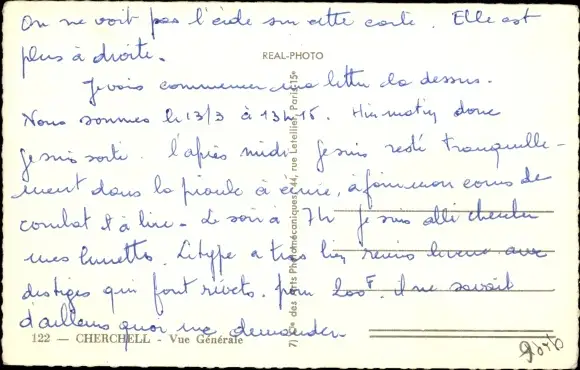 On ne voit pas l'école sur cette carte. Elle est
plus à droite.
REAL-PHOTO
Je vais commencer ma lettre là dessus.
Nous sommes le 13/3 à 13h15. Hier matin donc
je suis sorti. l'après midi je suis resté tranquille-
ment dans la piaule à écrire, à faire mon cours de
combat et à lire. Le soir à 7h je suis allé chercher
mes lunettes. Le type a très bien remis les verres avec
des tiges qui font rivets. pour 200F. il ne savait
d'ailleurs quoi me demander.
122 — CHERCHELL - Vue Générale
des Arts Photomécaniques, 44, rue Letellier, Paris-15e